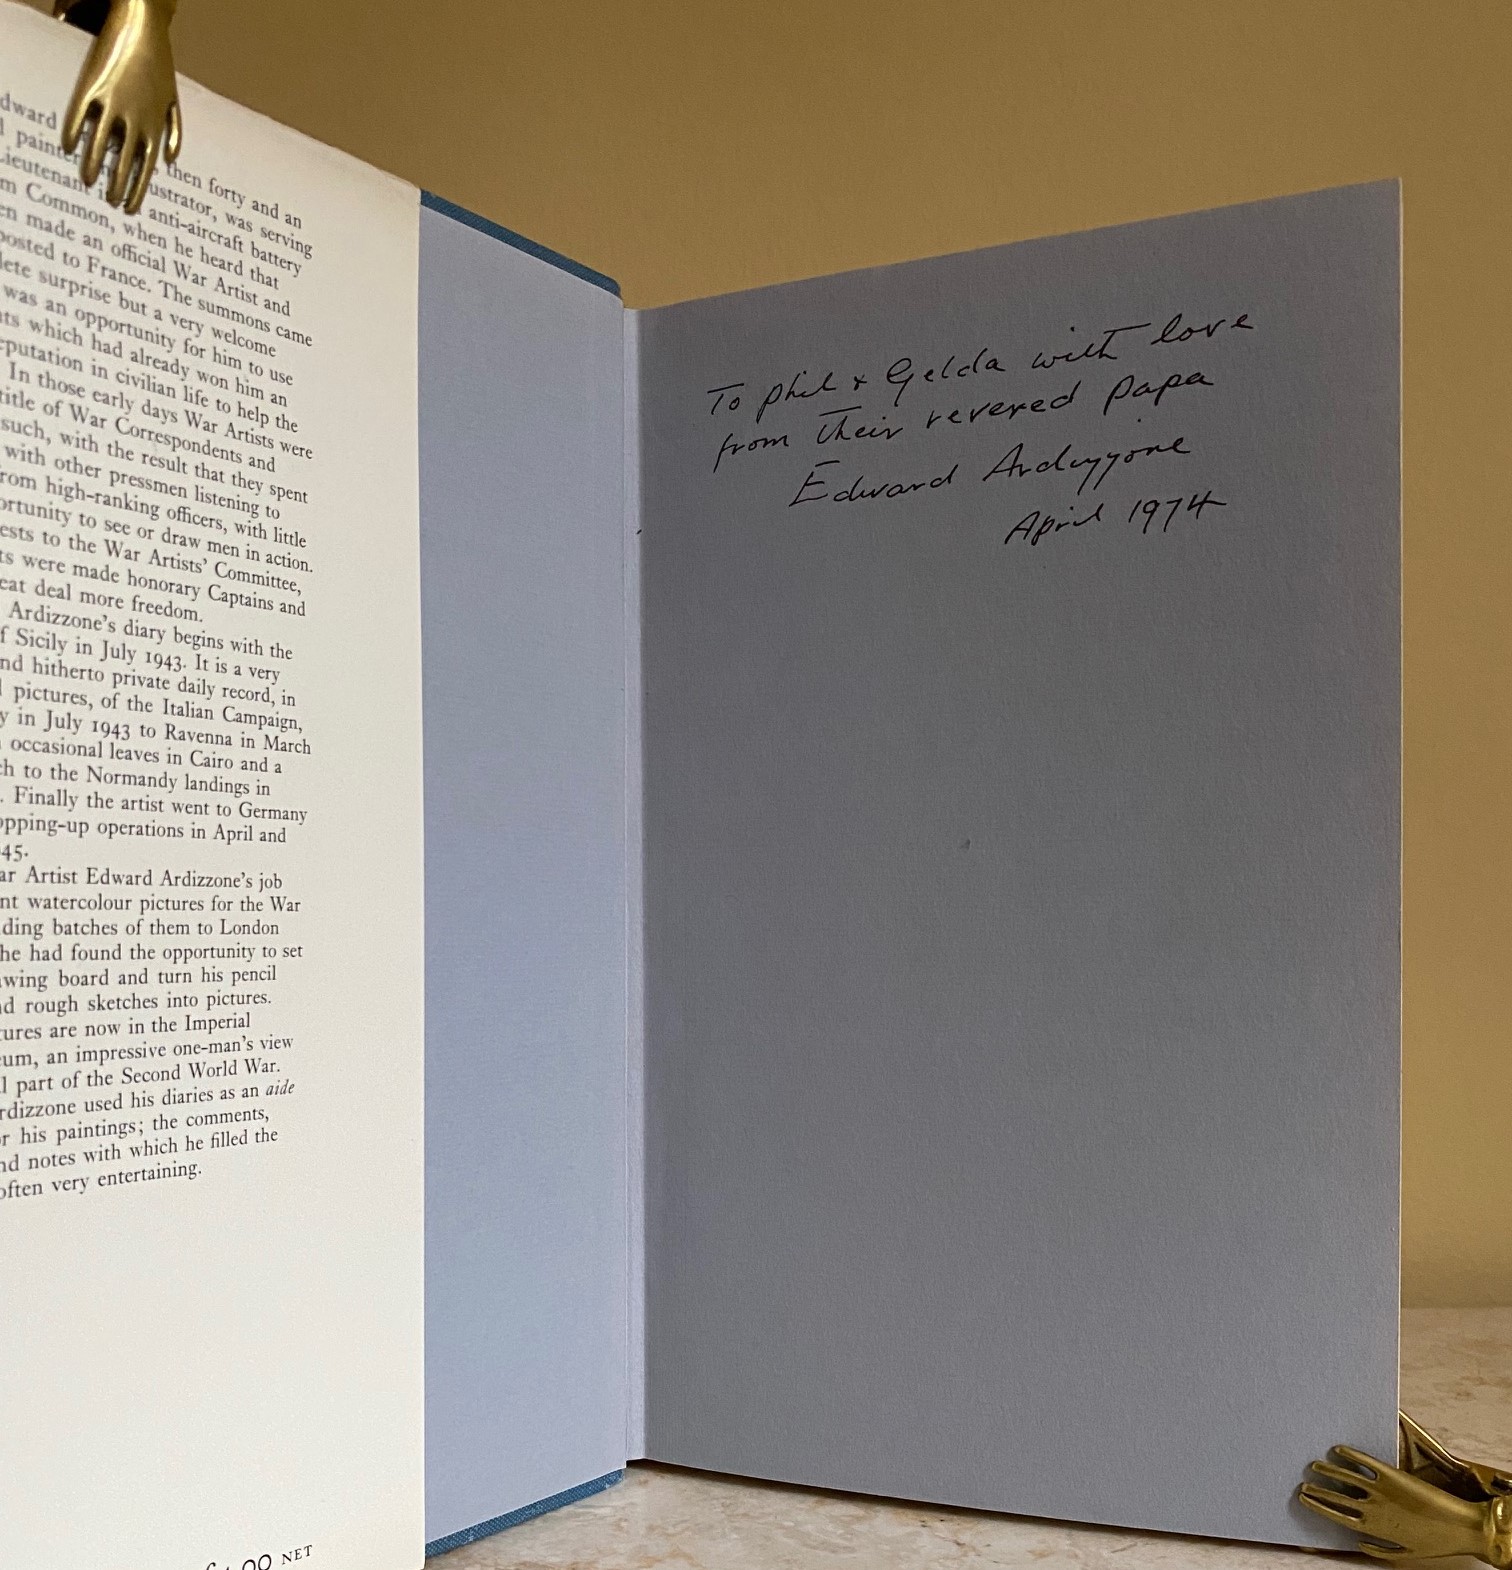 dward
painter then forty and an
Lieutenant ustrator, was serving
m Common, anti-aircraft battery
en made an official when he heard that
posted to France. War Artist and
lete surprise but The summons came
was an opportunity a very welcome
ts which had already for him to use
eputation in civilian won him an
In those early days life to help the
title of War Correspondents War Artists were
such, with the result and
with other pressmen that they spent
rom high-ranking officers, listening to
ortunity to see or draw with little
ests to the War Artists' men in action.
ts were made honorary Committee,
eat deal more freedom. Captains and
Ardizzone's diary begins with the
f Sicily in July 1943. It is a very
nd hitherto private daily record, in
l pictures, of the Italian Campaign,
y in July 1943 to Ravenna in March
occasional leaves in Cairo and a
ch to the Normandy landings in
. Finally the artist went to Germany
opping-up operations in April and
45.
ar Artist Edward Ardizzone's job
nt watercolour pictures for the War
ding batches of them to London
he had found the opportunity to set
wing board and turn his pencil
nd rough sketches into pictures.
tures are now in the Imperial
eum, an impressive one-man's view
l part of the Second World War.
rdizzone used his diaries as an aide
or his paintings; the comments,
nd notes with which he filled the
often very entertaining.
00 NET
To Phil + Gelda with love
from their revered papa
Edward Ardizzone
April 1974